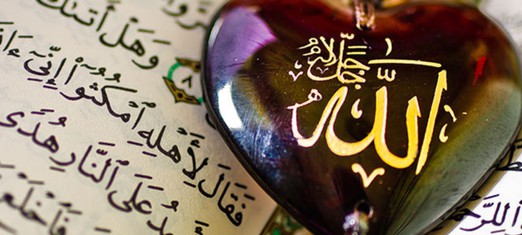 وَهَلْ أَتَىٰكَ
٨
فَقَالَ لِأَهْلِهِ ٱمْكُثُوٓا۟ إِنِّىٓ
عَلَى ٱلنَّارِ هُدًى
فَٱخْلَعْ
الله
جل جلاله